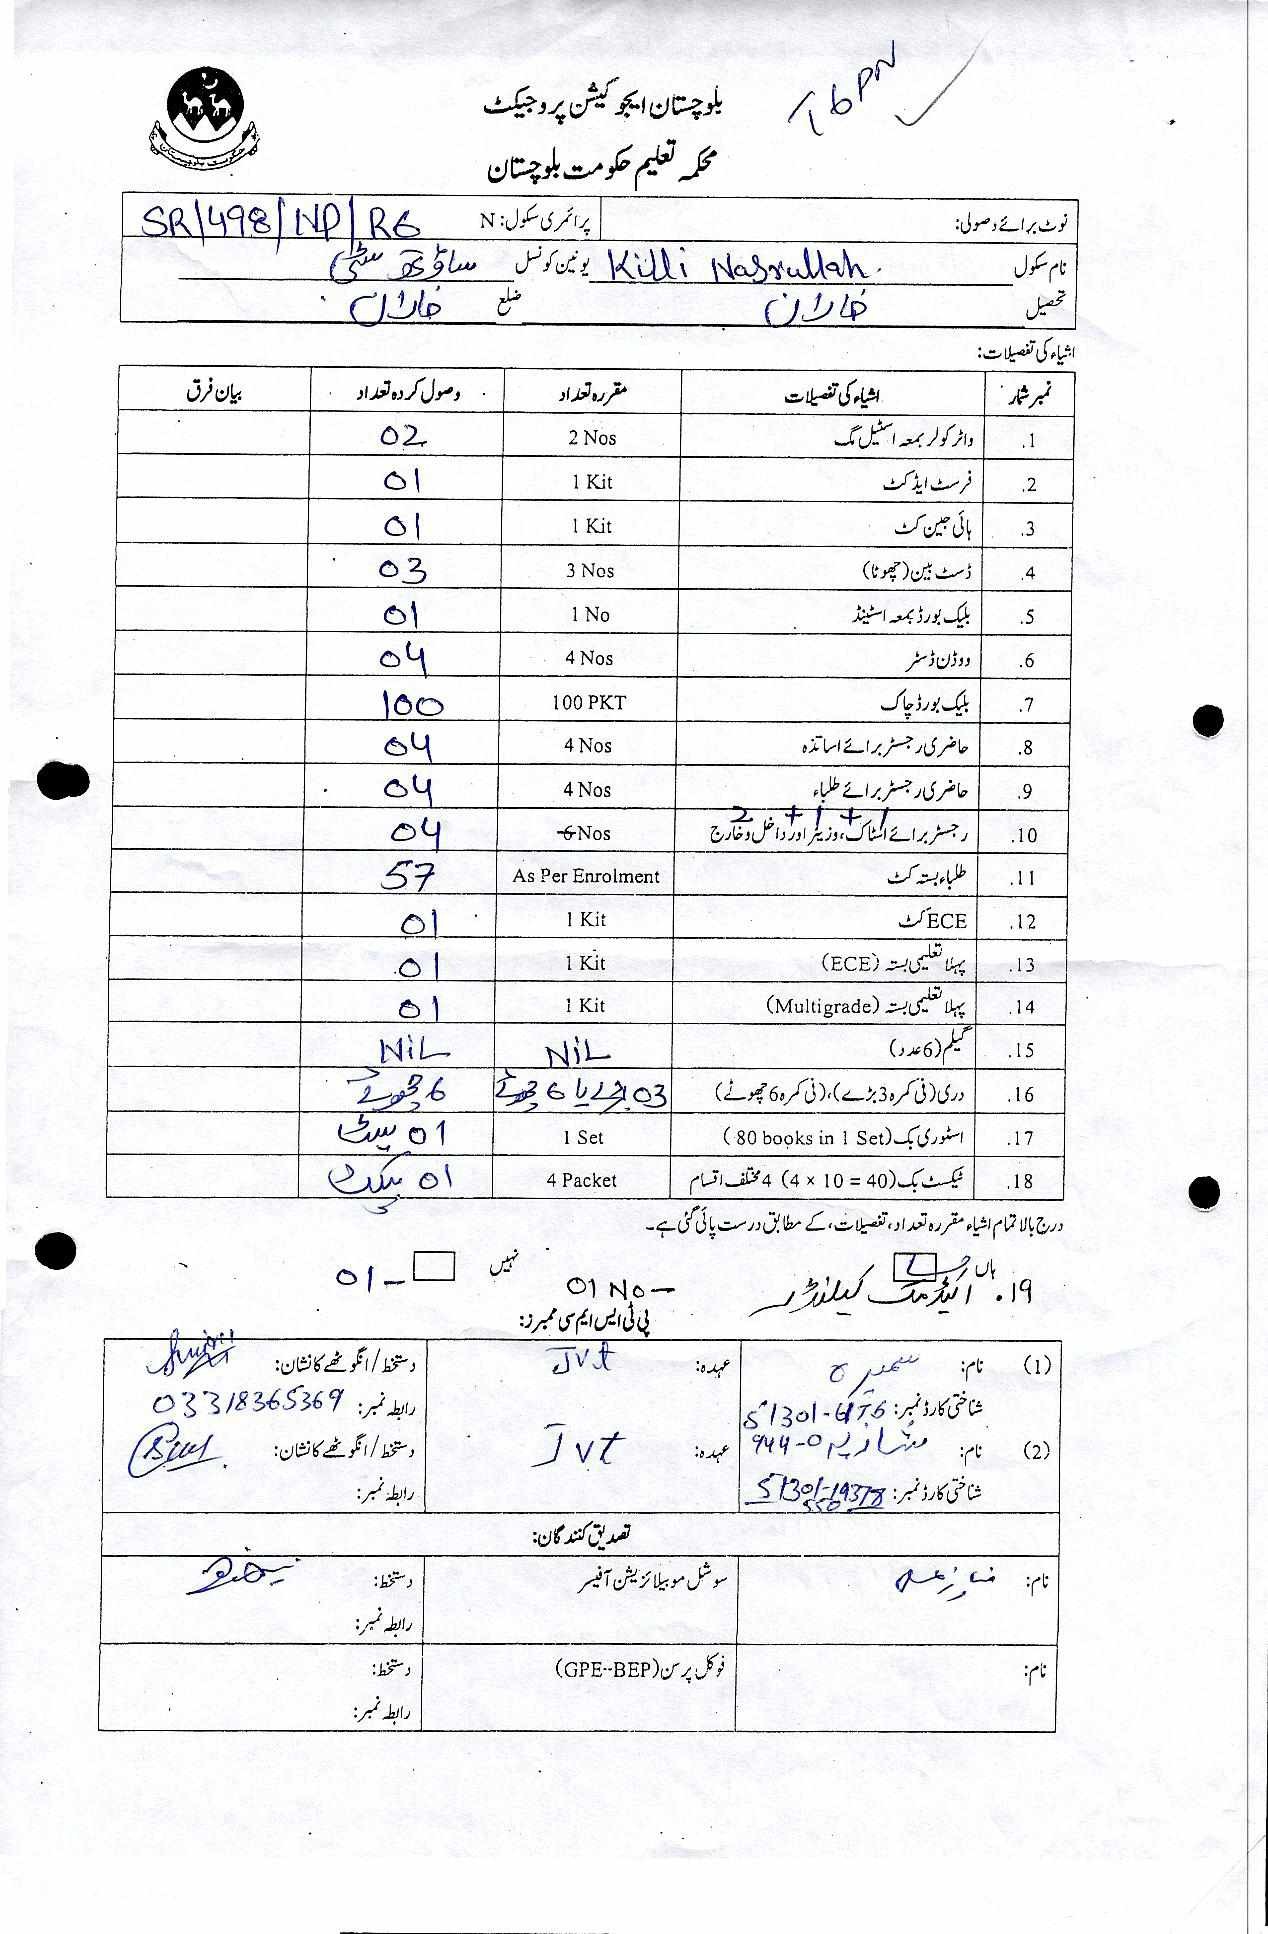 بلوچستان ایجوکیشن پروجیکٹ
محکمہ تعلیم حکومت بلوچستان
نوٹ برائے وصولی: پرائمری سکول: N SR/498/NP/R6
نام سکول Killi Nasrullah یونین کونسل ساؤتھ سٹی
تحصیل خاران ضلع خاران
اشیاء کی تفصیلات:
نمبر شمار اشیاء کی تفصیلات مقررہ تعداد وصول کردہ تعداد بیان فرق
1. واٹر کولر بمعہ اسٹیل مگ 2 Nos 02
2. فرسٹ ایڈ کٹ 1 Kit 01
3. ہائی جین کٹ 1 Kit 01
4. ڈسٹ بین (چھوٹا) 3 Nos 03
5. بلیک بورڈ بمعہ اسٹینڈ 1 No 01
6. ووڈن ڈسٹر 4 Nos 04
7. بلیک بورڈ چاک 100 PKT 100
8. حاضری رجسٹر برائے اساتذہ 4 Nos 04
9. حاضری رجسٹر برائے طلباء 4 Nos 04
2 + 1 + 1
10. رجسٹر برائے اسٹاک، وزیٹر اور داخل و خارج 6 Nos 04
11. طلباء بستہ کٹ As Per Enrolment 57
12. ECE کٹ 1 Kit 01
13. پہلا تعلیمی بستہ (ECE) 1 Kit 01
14. پہلا تعلیمی بستہ (Multigrade) 1 Kit 01
15. گیم (6 عدد) NiL NiL
16. دری (فی کمرہ 3 بڑے)، (فی کمرہ 6 چھوٹے) 03 بڑے یا 6 چھوٹے 6 چھوٹے
17. اسٹوری بک (80 books in 1 Set) 1 Set 01 سیٹ
18. ٹیکسٹ بک (4 × 10 = 40) 4 مختلف اقسام 4 Packet 01 پیکٹ
درج بالا تمام اشیاء مقررہ تعداد، تفصیلات، کے مطابق درست پائی گئی ہے۔
ہاں نہیں
۱۹. اکیڈمک کیلنڈر 01 No - 01
پی ٹی ایس ایم سی ممبرز:
(1) نام: سمیرہ عہدہ: Jvt دستخط/انگوٹھے کا نشان:
شناختی کارڈ نمبر: رابطہ نمبر: 03318365369
(2) نام: شازیہ عہدہ: Jvt دستخط/انگوٹھے کا نشان:
شناختی کارڈ نمبر: رابطہ نمبر:
تصدیق کنندگان:
نام: سوشل موبیلائزیشن آفیسر دستخط:
رابطہ نمبر:
نام: فوکل پرسن (GPE-BEP) دستخط:
رابطہ نمبر: